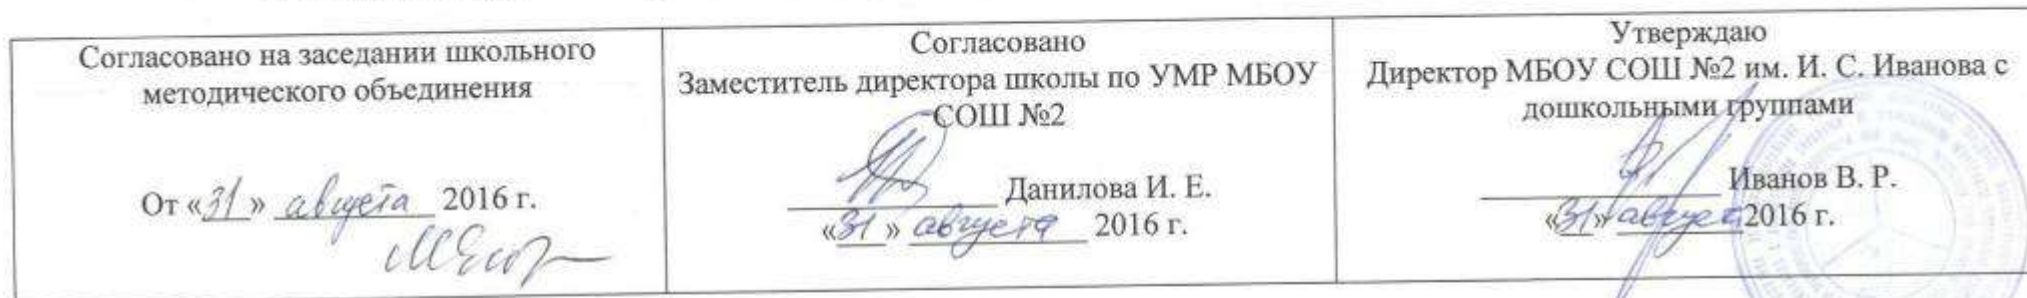 Согласовано на заседании школьного
методического объединения
От «31» августа 2016 г.
Согласовано
Заместитель директора школы по УМР МБОУ
СОШ №2
Данилова И. Е.
«31» августа 2016 г.
Утверждаю
Директор МБОУ СОШ №2 им. И. С. Иванова с
дошкольными группами
Иванов В. Р.
«31» август 2016 г.